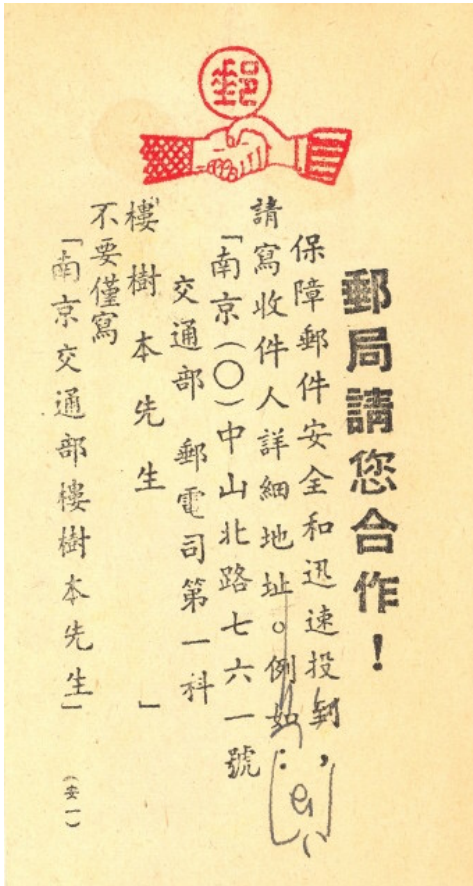 郵
郵局請您合作！
保障郵件安全和迅速投到，
請寫收件人詳細地址。例如：
「南京（〇）中山北路七六一號
交通部　郵電司第一科
樓樹本先生　」
不要僅寫
「南京交通部樓樹本先生」
（安一）